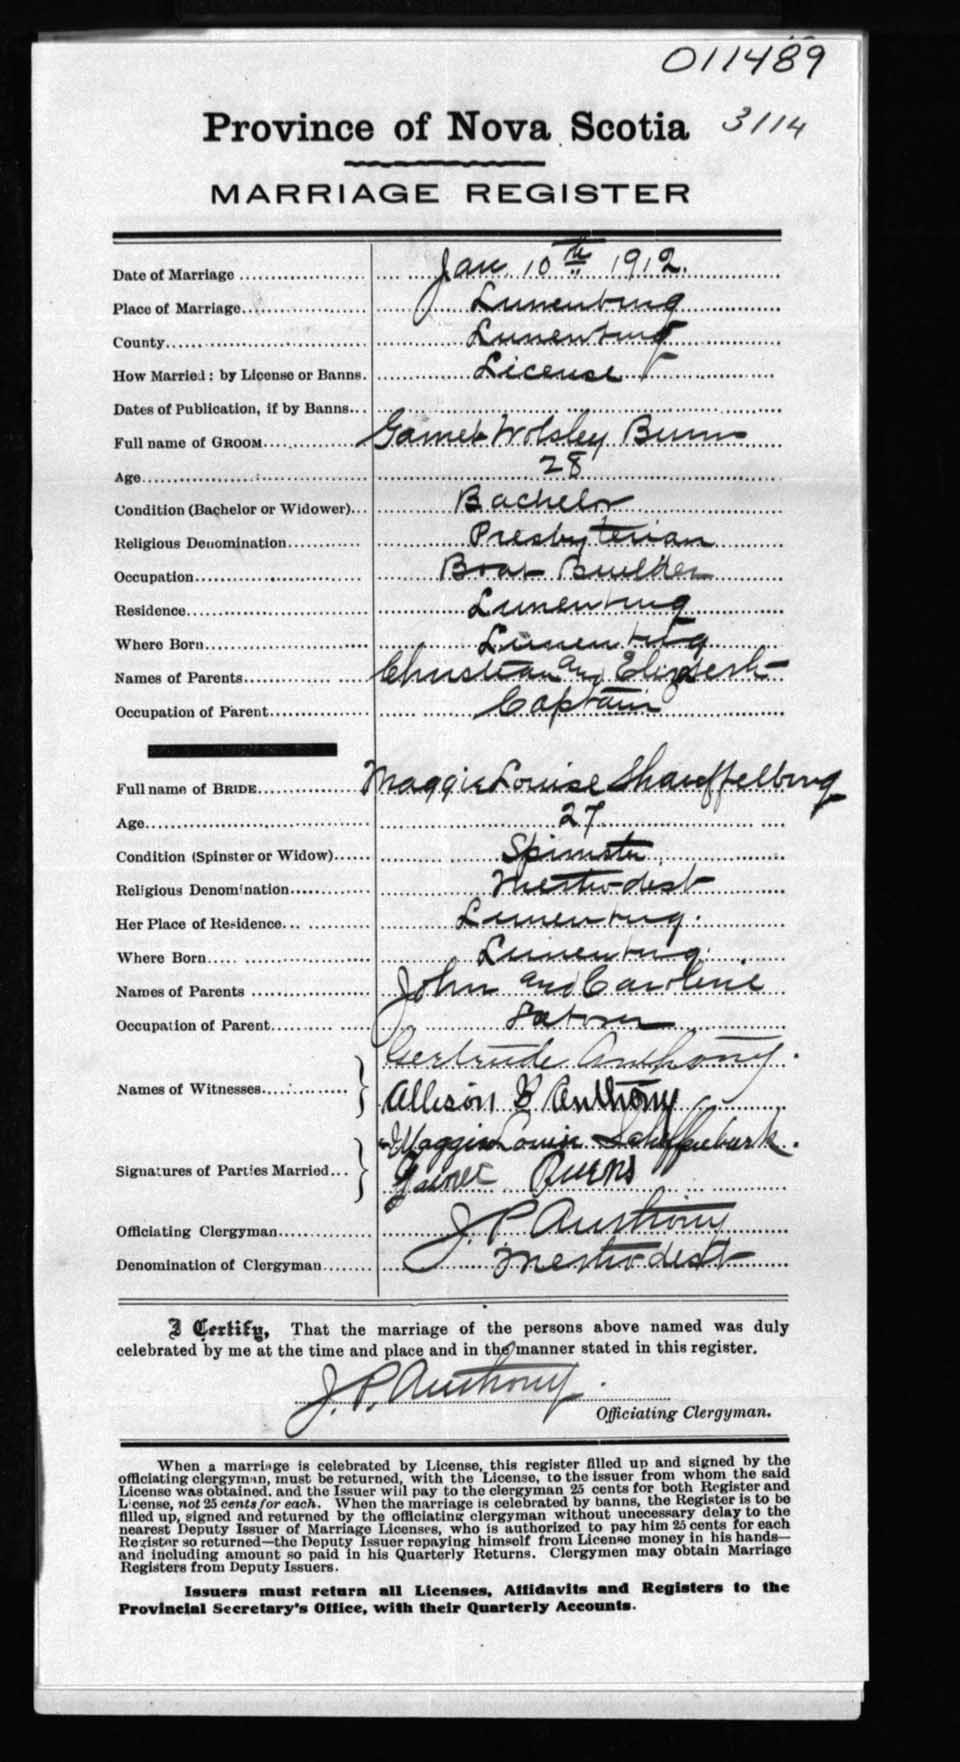 011489
Province of Nova Scotia 3114
MARRIAGE REGISTER
Date of Marriage Jan. 10th 1912.
Place of Marriage Lunenburg
County Lunenburg
How Married: by License or Banns. License
Dates of Publication, if by Banns
Full name of GROOM Garnet Wolsley Burns
Age 28
Condition (Bachelor or Widower) Bachelor
Religious Denomination Presbyterian
Occupation Boat Builder
Residence Lunenburg
Where Born Lunenburg
Names of Parents Christian and Elizabeth
Occupation of Parent Captain
Full name of BRIDE Maggie Louise Shauffelburg
Age 27
Condition (Spinster or Widow) Spinster
Religious Denomination Methodist
Her Place of Residence Lunenburg.
Where Born Lunenburg.
Names of Parents John and Caroline
Occupation of Parent Laborer
Gertrude Anthony.
Names of Witnesses
Allison B Anthony
Maggie Louise
Signatures of Parties Married
Garnet Burns
Officiating Clergyman J. P. Anthony
Denomination of Clergyman Methodist
I Certify, That the marriage of the persons above named was duly
celebrated by me at the time and place and in the manner stated in this register.
J. P. Anthony.
Officiating Clergyman.
When a marriage is celebrated by License, this register filled up and signed by the
officiating clergyman, must be returned, with the License, to the issuer from whom the said
License was obtained, and the Issuer will pay to the clergyman 25 cents for both Register and
License, not 25 cents for each. When the marriage is celebrated by banns, the Register is to be
filled up, signed and returned by the officiating clergyman without unnecessary delay to the
nearest Deputy Issuer of Marriage Licenses, who is authorized to pay him 25 cents for each
Register so returned—the Deputy Issuer repaying himself from License money in his hands—
and including amount so paid in his Quarterly Returns. Clergymen may obtain Marriage
Registers from Deputy Issuers.
Issuers must return all Licenses, Affidavits and Registers to the
Provincial Secretary's Office, with their Quarterly Accounts.